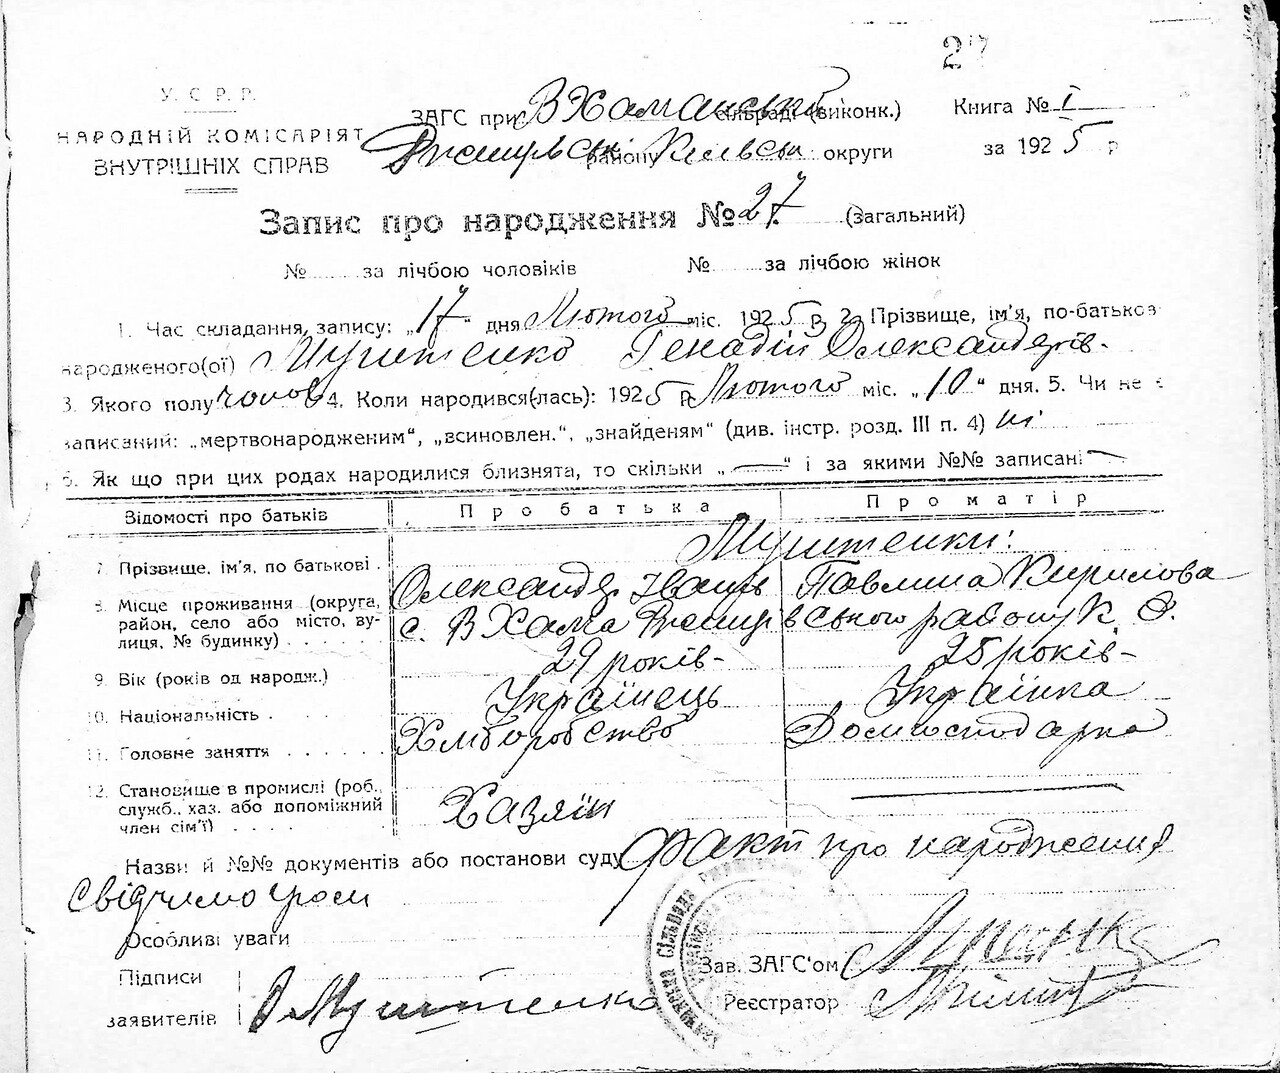 27
У. С. Р. Р.
НАРОДНІЙ КОМІСАРІЯТ
ВНУТРІШНІХ СПРАВ
ЗАГС при В Хаманській сільраді (виконк.) Книга № I
району Київськ округи за 1925 р
Запис про народження № 27 (загальний)
№ за лічбою чоловіків № за лічбою жінок
1. Час складання запису: „17“ дня Лютого міс. 1925 р. 2. Прізвище, ім'я, по-батьков
народженого(ої) Генадій Олександрів-
3. Якого полу чолов 4. Коли народився(лась): 1925 р Лютого міс. „10“ дня. 5. Чи не є
записаний: „мертвонародженим“, „всиновлен.“, „знайденям“ (див. інстр. розд. III п. 4) ні
6. Як що при цих родах народилися близнята, то скільки „—“ і за якими №№ записані —
Відомості про батьків Про батька Про матір
7. Прізвище, ім'я, по батькові.
Олександр Іванів Павлина Кирилова
8. Місце проживання (округа, район, село або місто, вулиця, № будинку)
с. В Хама району К. О.
9. Вік (років од народж.) 29 років- 25 років-
10. Національність Українець Українка
11. Головне заняття Хліборобство Домгосподарка
12. Становище в промислі (роб., служб., хаз. або допоміжний член сім'ї) Хазяїн
Назви й №№ документів або постанови суду Факт про народження
свідчимо
Особливі уваги
Підписи
заявителів
Зав. ЗАГС'ом
Реєстратор